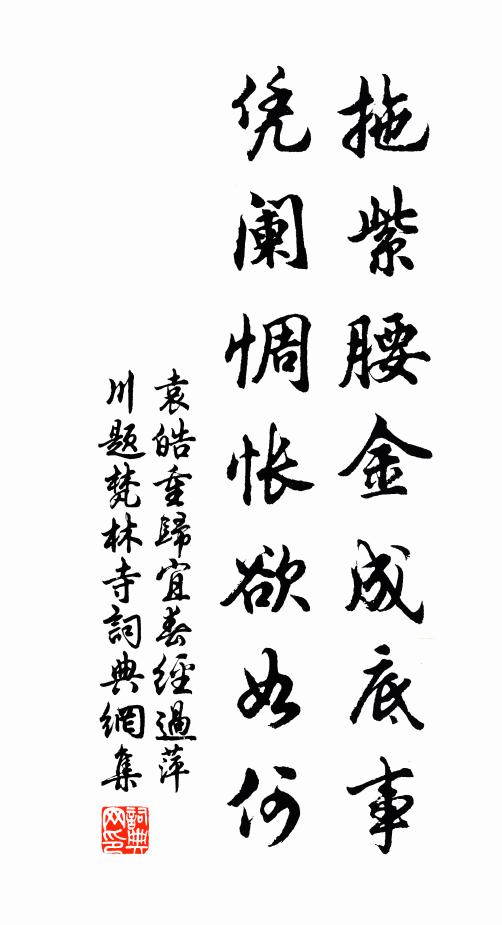 拖紫腰金成底事
凭阑惆怅欲如何
袁皓重歸宜春經過萍
川題梵林寺詞典網集
詞典
网印